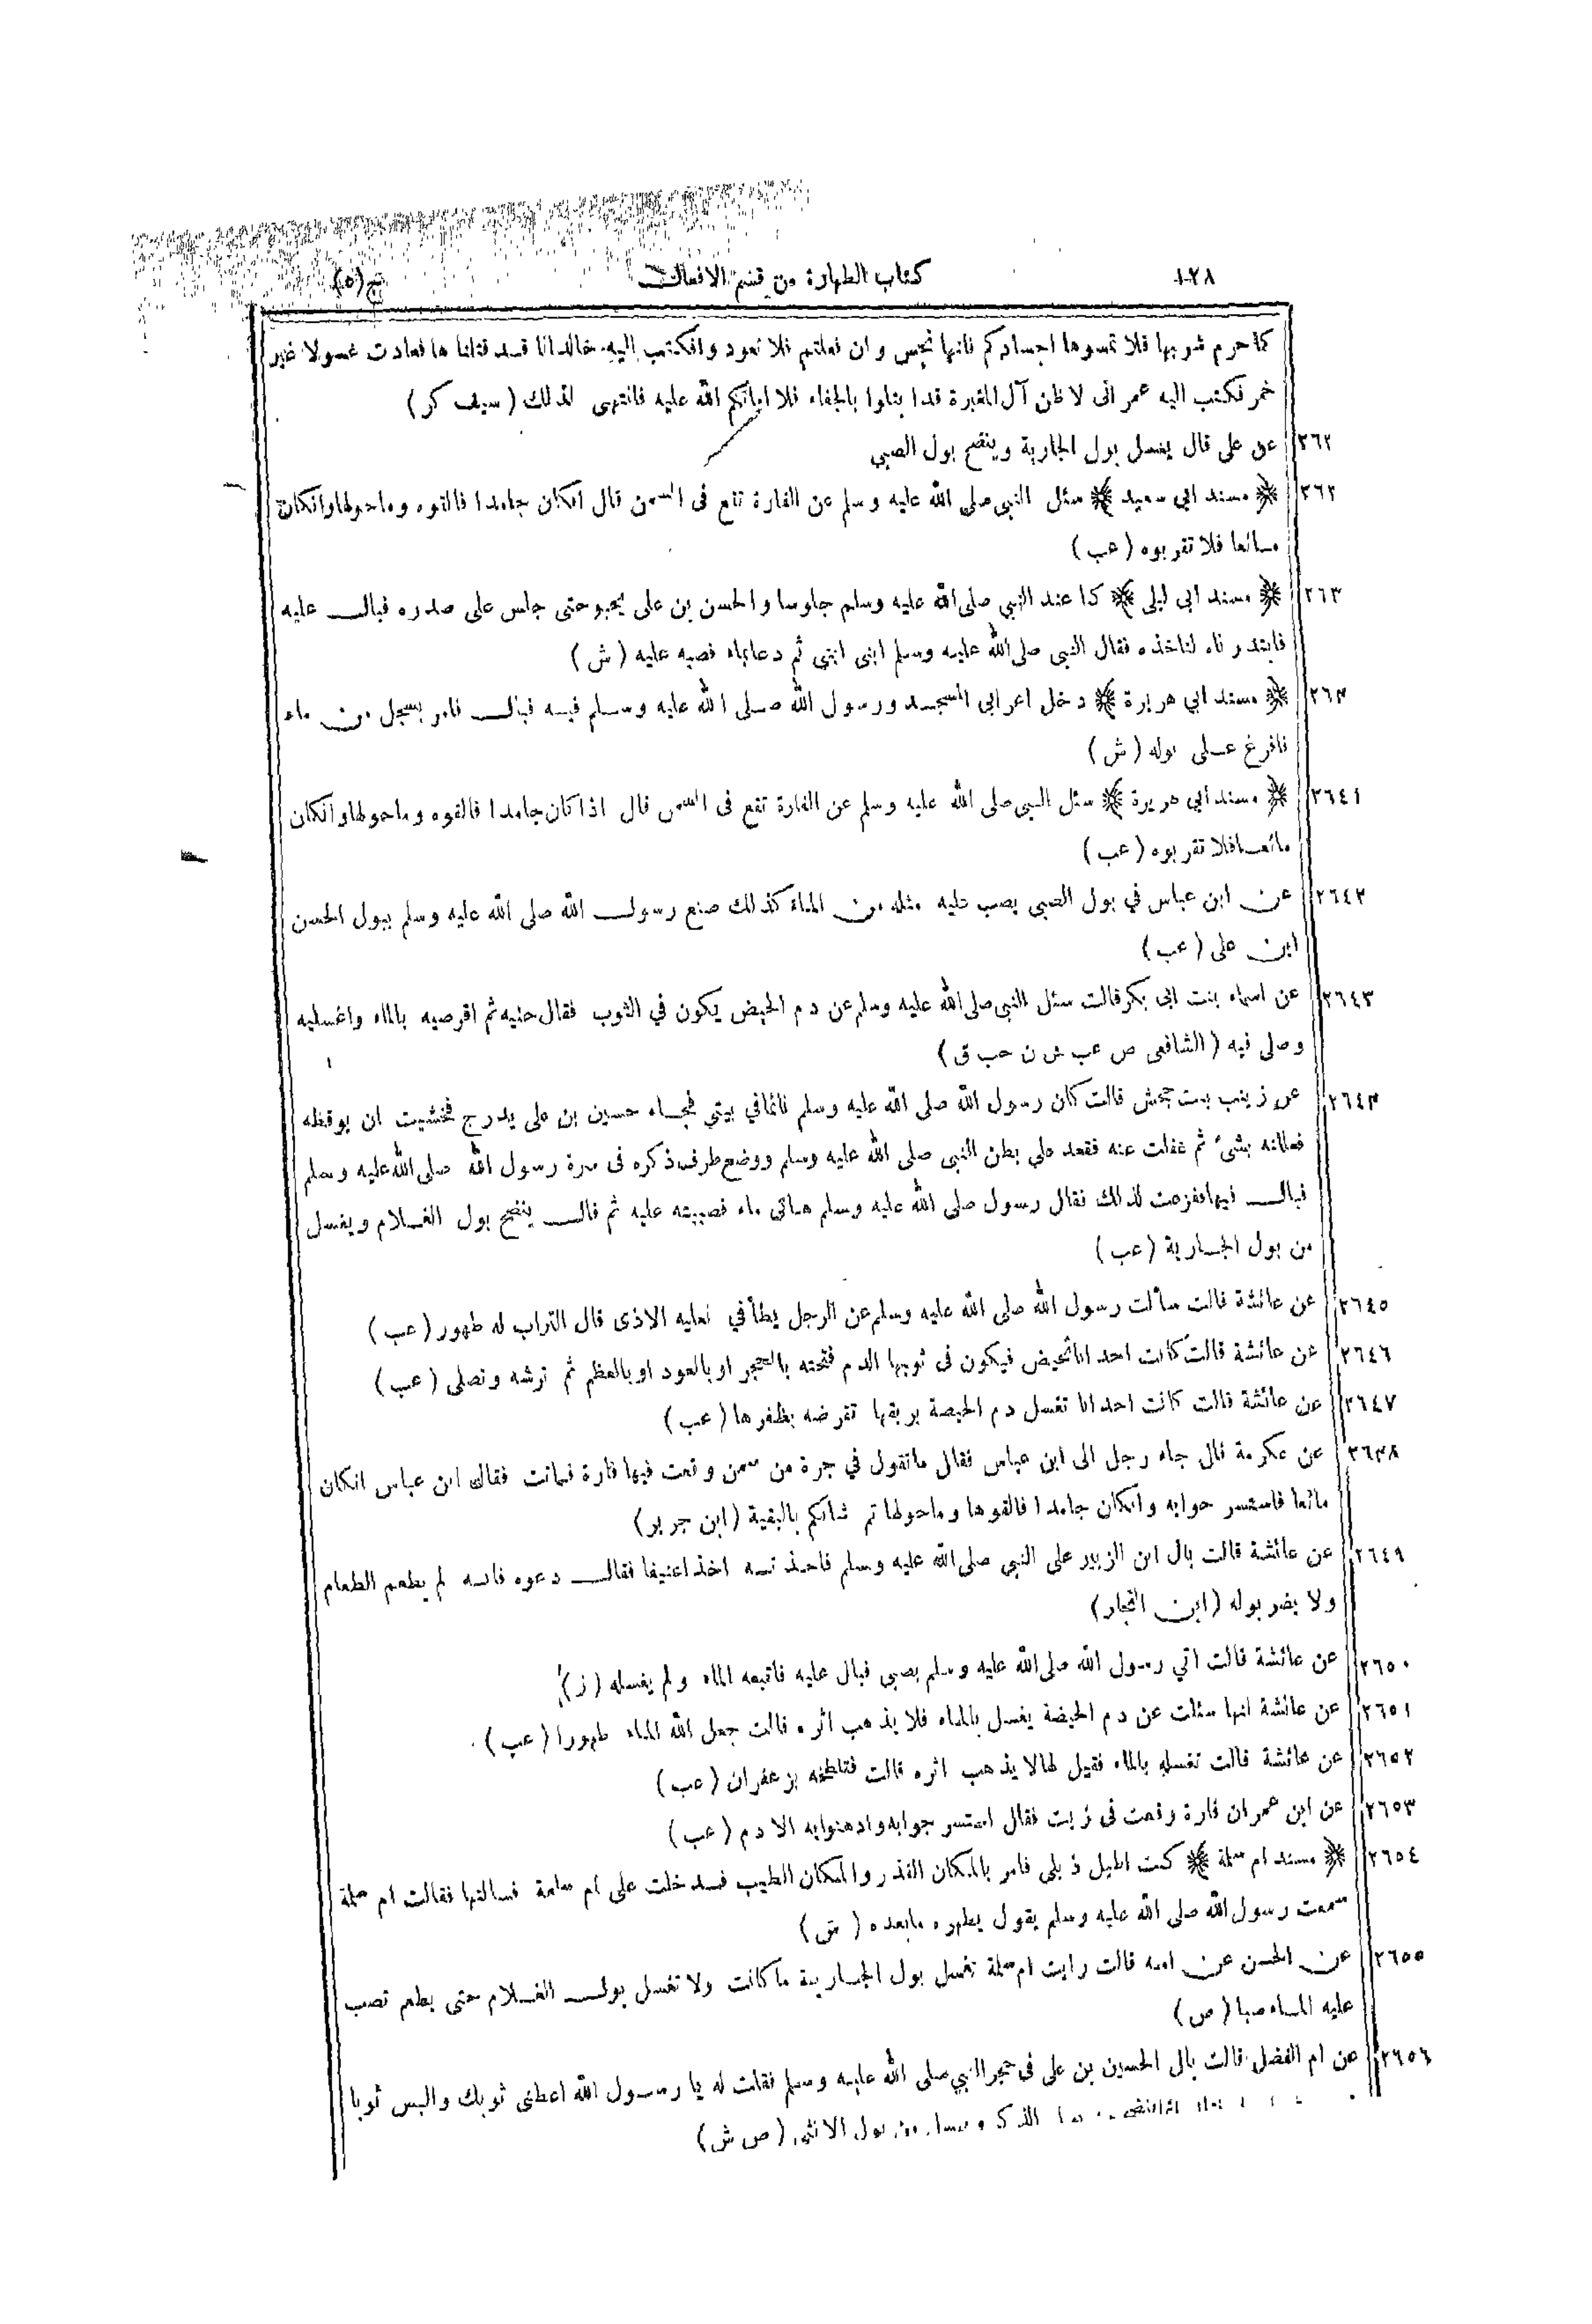 ١٢٨ كتاب الطهارة من قسم الافعال ج (٥)
كما حرم شربها فلا تمسوها اجسادكم فانها نجس وان فعلتم فلا تعودوا فكتب اليه خالد انا قد قتلنا ها فعادت غسولا غير
خمر فكتب اليه عمر انى لا ظن آل المغيرة قدا بتلوا بالجفاء فلا اماتكم الله عليه فانتهى لذلك (سيف كر)
٢٦٣ عن على قال يغسل بول الجارية وينضح بول الصبي
٢٦٣ مسند ابي سعيد سئل النبي صلى الله عليه وسلم عن الفارة تقع فى السمن قال انكان جامدا فالقوه وماحولها وانكان
مائعا فلا تقربوه (عب)
٢٦٣ مسند ابى ليلى كنا عند النبي صلى الله عليه وسلم جلوسا والحسن بن على يحبو حتى جلس على صدره فبال عليه
فابتدر ناه لناخذه فقال النبى صلى الله عليه وسلم ابنى ابنى ثم دعا بماء فصبه عليه (ش)
٢٦٤ مسند ابي هريرة دخل اعرابى المسجد ورسول الله صلى الله عليه وسلم فيه فبال فامر بسجل من ماء
فافرغ على بوله (ش)
٢٦٤١ مسند ابي هريرة سئل النبي صلى الله عليه وسلم عن الفارة تقع فى السمن قال اذا كان جامدا فالقوه وماحولها وانكان
مائعا فلا تقربوه (عب)
٢٦٤٢ عن ابن عباس في بول الصبى يصب عليه مثله من الماء كذلك صنع رسول الله صلى الله عليه وسلم ببول الحسن
ابن على (عب)
٢٦٤٣ عن اسماء بنت ابى بكر قالت سئل النبي صلى الله عليه وسلم عن دم الحيض يكون في الثوب فقال حتيه ثم اقرصيه بالماء واغسليه
وصلى فيه (الشافعى ص عب ش ن حب ق)
٢٦٤٤ عن زينب بنت جحش قالت كان رسول الله صلى الله عليه وسلم نائما في بيتي فجاء حسين بن على يدرج فخشيت ان يوقظه
فعللته بشئ ثم غفلت عنه فقعد على بطن النبى صلى الله عليه وسلم ووضع طرف ذكره فى سرة رسول الله صلى الله عليه وسلم
فبال فيها ففزعت لذلك فقال رسول صلى الله عليه وسلم هاتى ماء فصببته عليه ثم قال ينضح بول الغلام ويغسل
من بول الجارية (عب)
٢٦٤٥ عن عائشة قالت سألت رسول الله صلى الله عليه وسلم عن الرجل يطأ في نعليه الاذى قال التراب له طهور (عب)
٢٦٤٦ عن عائشة قالت كانت احدانا تحيض فيكون فى ثوبها الدم فتحته بالحجر او بالعود او بالعظم ثم ترشه وتصلى (عب)
٢٦٤٧ عن عائشة قالت كانت احدانا تغسل دم الحيضة بريقها تقرضه بظفرها (عب)
٢٦٤٨ عن عكرمة قال جاء رجل الى ابن عباس فقال ماتقول في جرة من سمن وقعت فيها فارة فماتت فقال ابن عباس انكان
مائعا فاستسر حوابه وانكان جامدا فالقوها وماحولها ثم شانكم بالبقية (ابن جرير)
٢٦٤٩ عن عائشة قالت بال ابن الزبير على النبي صلى الله عليه وسلم فاخذ ته اخذا عنيفا فقال دعوه فانه لم يطعم الطعام
ولا يضر بوله (ابن النجار)
٢٦٥٠ عن عائشة قالت اتي رسول الله صلى الله عليه وسلم بصبى فبال عليه فاتبعه الماء ولم يغسله (ز)
٢٦٥١ عن عائشة انها سئلت عن دم الحيضة يغسل بالماء فلا يذهب اثره قالت جعل الله الماء طهورا (عب)
٢٦٥٢ عن عائشة قالت تغسله بالماء فقيل لها لا يذهب اثره قالت فتلطخه بزعفران (عب)
٢٦٥٣ عن ابن عمر ان فارة وقعت فى زيت فقال استسر جوابه وادهنوا به الادم (عب)
٢٦٥٤ مسند ام سلمة كنت اطيل ذيلى فامر بالمكان القذر والمكان الطيب فدخلت على ام سلمة فسالتها فقالت ام سلمة
سمعت رسول الله صلى الله عليه وسلم يقول يطهره مابعده (ش)
٢٦٥٥ عن الحسن عن امه قالت رايت ام سلمة تغسل بول الجارية ما كانت ولا تغسل بول الغلام حتى يطعم تصب
عليه الماء صبا (ص)
٢٦٥٦ عن ام الفضل قالت بال الحسين بن على فى حجر النبي صلى الله عليه وسلم فقلت له يا رسول الله اعطنى ثوبك والبس ثوبا
الذكر من بول الانثى (ص ش)